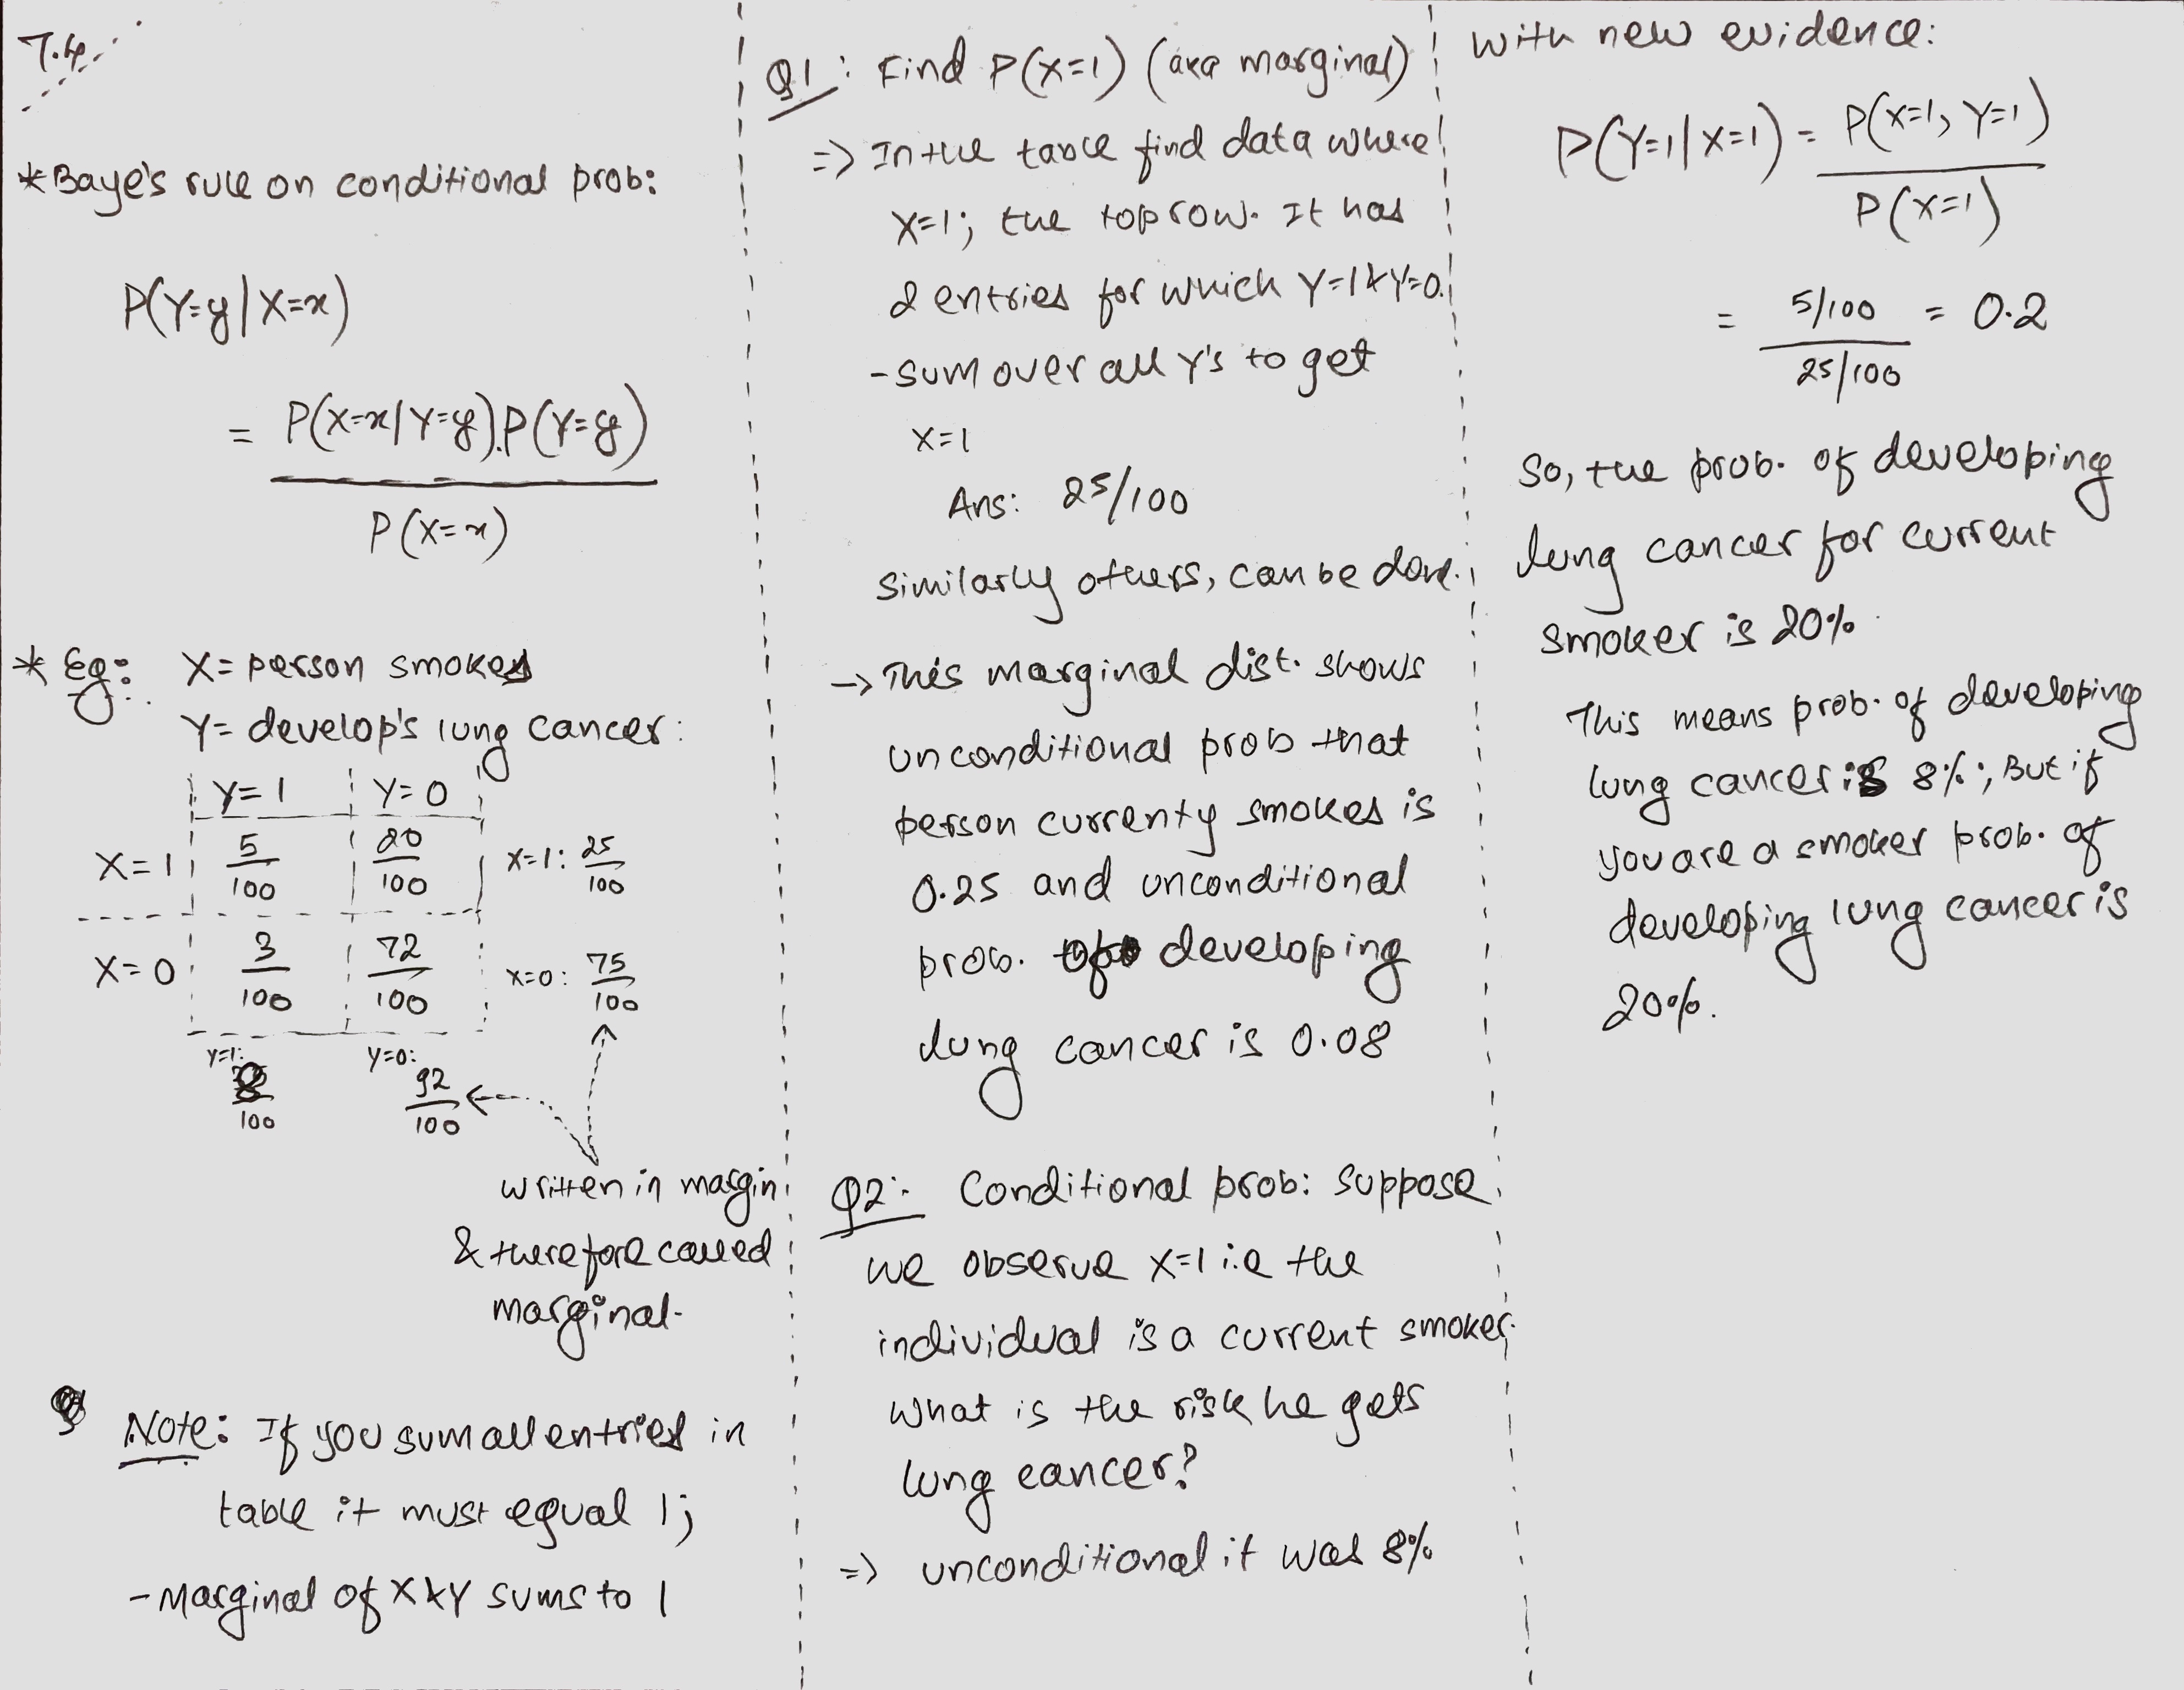 7.4
*Baye's rule on conditional prob:
P(Y=y|X=x)
= P(X=x|Y=y).P(Y=y)
P(X=x)
* Eg: X= person smokes
Y= develop's lung cancer:
Y=1 Y=0
X=1 5/100 20/100 X=1: 25/100
X=0 3/100 72/100 X=0: 75/100
Y=1: Y=0:
8/100 92/100
written in margin
& therefore called
marginal.
Note: If you sum all entries in
table it must equal 1;
- Marginal of X & Y sums to 1
Q1: Find P(X=1) (aka marginal)
=> In the table find data where
X=1; the top row. It has
2 entries for which Y=1 & Y=0.
- sum over all Y's to get
X=1
Ans: 25/100
Similarly others, can be done.
-> This marginal dist. shows
unconditional prob that
person currenty smokes is
0.25 and unconditional
prob. of developing
lung cancer is 0.08
Q2: Conditional prob: Suppose
we observe X=1 i.e the
individual is a current smoker.
What is the risk he gets
lung cancer?
=> unconditional it was 8%
With new evidence:
P(Y=1|X=1) = P(X=1, Y=1)
P(X=1)
= 5/100 = 0.2
25/100
So, the prob. of developing
lung cancer for current
smoker is 20%
This means prob. of developing
lung cancer is 8%; But if
you are a smoker prob. of
developing lung cancer is
20%.